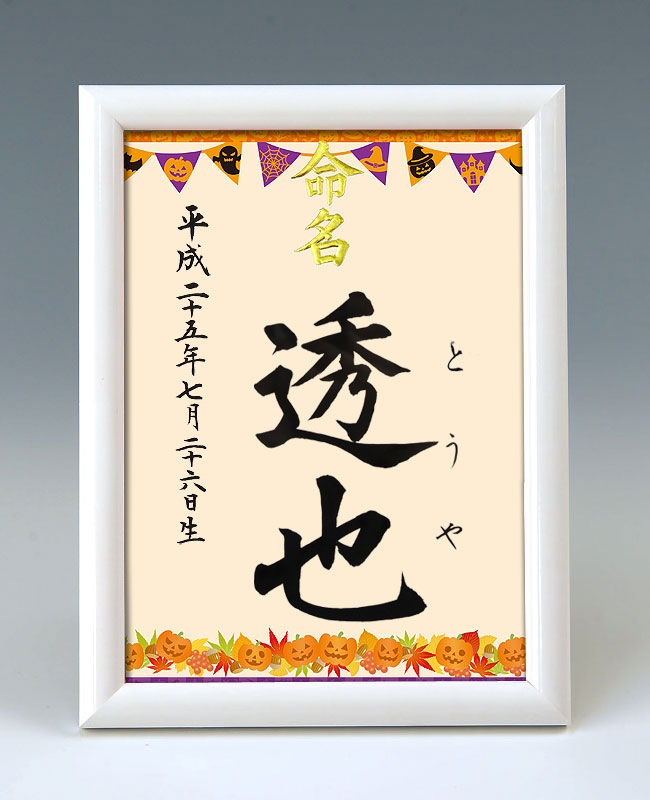 命名
とうや
透也
平成二十五年七月二十六日生